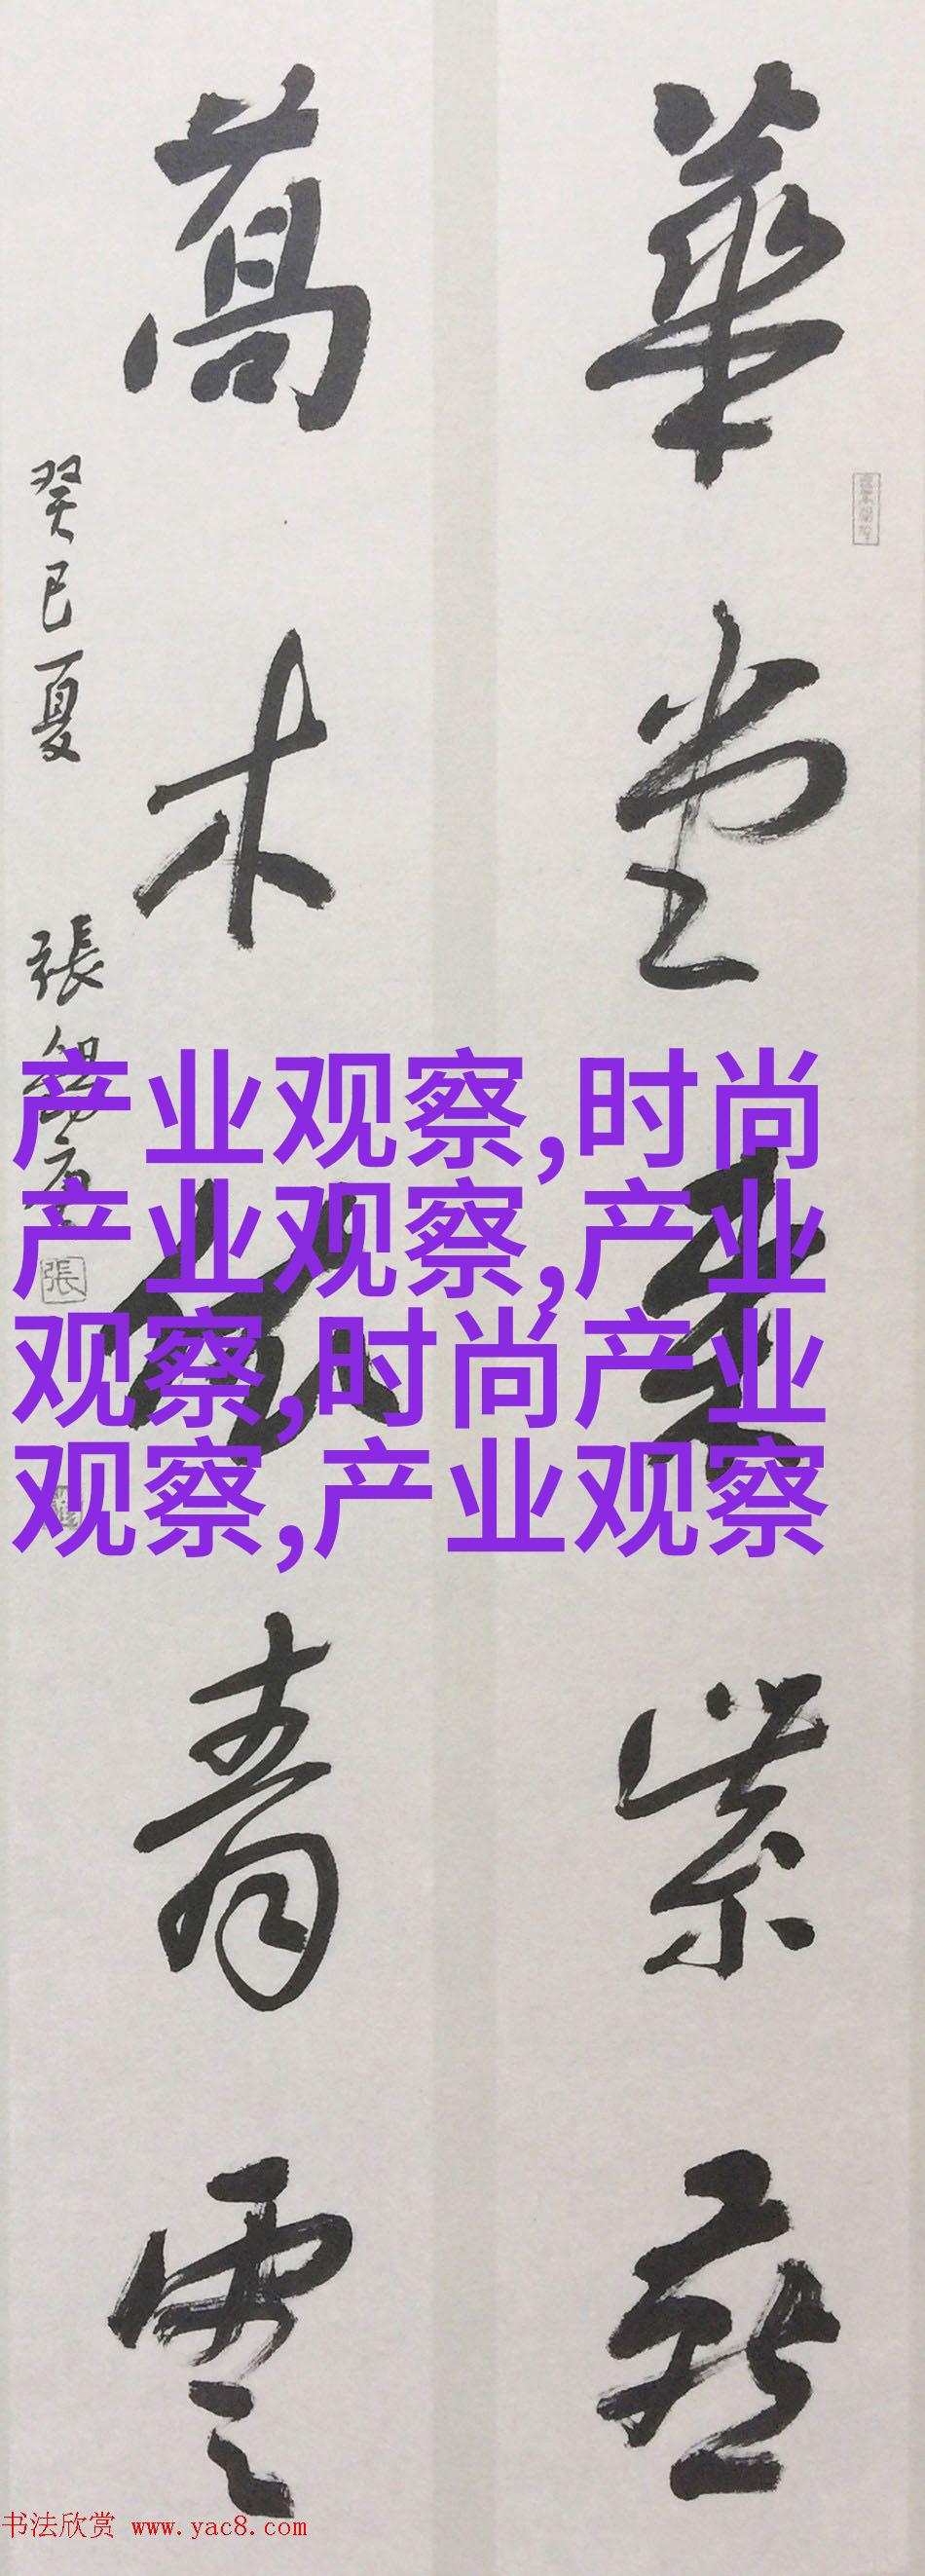 華堂來紫燕
萬木青雲
癸巳夏
張
張
产业观察,时尚
产业观察,产业
观察,时尚产业
观察,产业观察
书法欣赏 www.yac8.com